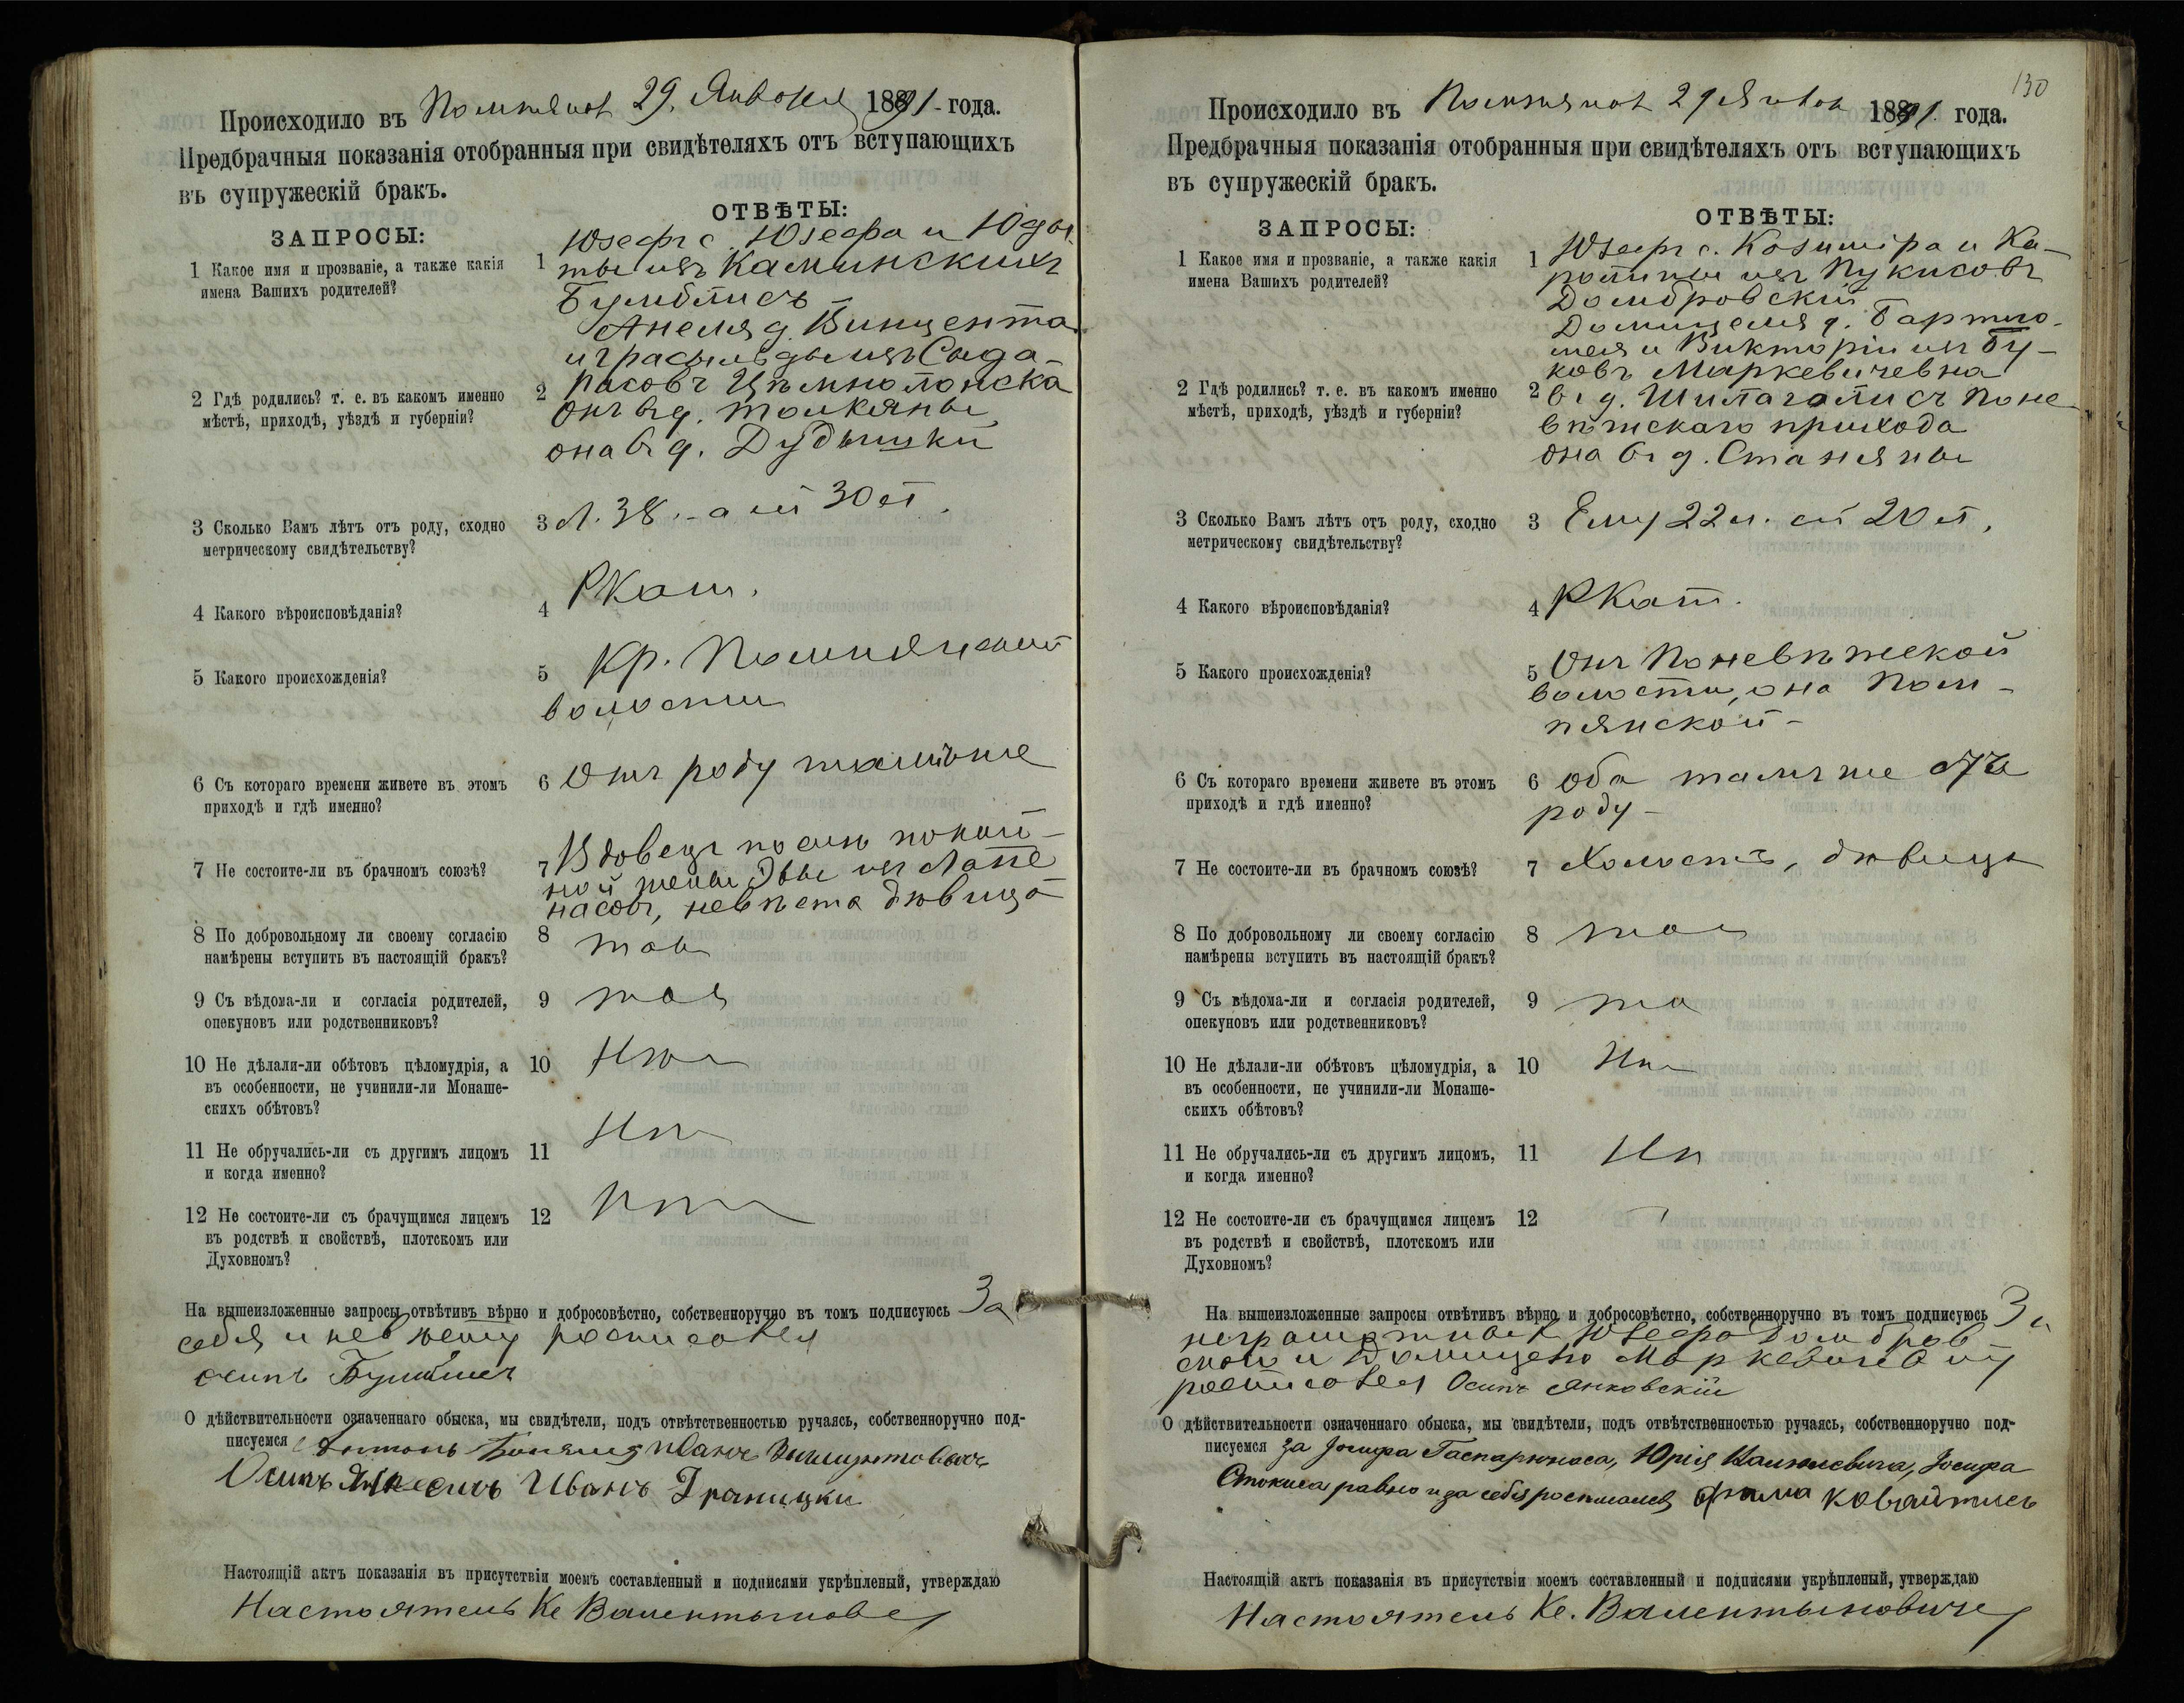 Происходило въ Помпянах 29. Января 1891 - года.
Предбрачныя показанія отобранныя при свидѣтеляхъ отъ вступающихъ
въ супружескій бракъ.
ЗАПРОСЫ:
ОТВѢТЫ:
1 Какое имя и прозваніе, а также какія
имена Вашихъ родителей?
1 Юзефъ с. Юзефа и Юди-
ты изъ Каминскихъ
Бумблисъ
Анеля д. Винцента
2 Гдѣ родились? т. е. въ какомъ именно
мѣстѣ, приходѣ, уѣздѣ и губерніи?
2
онъ въ д.
она въ д. Дудышки
3 Сколько Вамъ лѣтъ отъ роду, сходно
метрическому свидѣтельству?
3 Л. 38. - а ей 30 л.
4 Какого вѣроисповѣданія?
4 РКат.
5 Какого происхожденія?
5 Кр. Помпянской
волости
6 Съ котораго времени живете въ этомъ
приходѣ и гдѣ именно?
6 Отъ роду тамъ же
7 Не состоите-ли въ брачномъ союзѣ?
7 Вдовецъ послѣ покой-
ной жены Эвы изъ Лапе-
насовъ, невѣста дѣвица
8 По добровольному ли своему согласію
намѣрены вступить въ настоящій бракъ?
8 такъ
9 Съ вѣдома-ли и согласія родителей,
опекуновъ или родственниковъ?
9 такъ
10 Не дѣлали-ли обѣтовъ цѣломудрія, а
въ особенности, не учинили-ли Монаше-
скихъ обѣтовъ?
10 Нѣ
11 Не обручались-ли съ другимъ лицомъ
и когда именно?
11 Нѣ
12 Не состоите-ли съ брачущимся лицемъ
въ родствѣ и свойствѣ, плотскомъ или
Духовномъ?
12 Нѣ
На вышеизложенные запросы отвѣтивъ вѣрно и добросовѣстно, собственноручно въ томъ подписуюсь За
себя и невѣсту росписался
осипъ Бумблисъ
О дѣйствительности означеннаго обыска, мы свидѣтели, подъ отвѣтственностью ручаясь, собственноручно под-
писуемся Антонъ Иванъ
Осипъ Иванъ Границки
Настоящій актъ показанія въ присутствіи моемъ составленный и подписями укрѣпленый, утверждаю
Настоятель Кс Валентынович
130
Происходило въ Помпянах 29 Январ 1891 года.
Предбрачныя показанія отобранныя при свидѣтеляхъ отъ вступающихъ
въ супружескій бракъ.
ЗАПРОСЫ:
ОТВѢТЫ:
1 Какое имя и прозваніе, а также какія
имена Вашихъ родителей?
1 Юзефъ с. Казиміра и Ка-
ролины изъ Пукисовъ
Домбровскій
Домицеля д. Бартло-
мея и Викторіи изъ Бу-
ковъ Маркевичевна
2 Гдѣ родились? т. е. въ какомъ именно
мѣстѣ, приходѣ, уѣздѣ и губерніи?
2 въ д. Шилагалисъ Поне-
вѣжскаго прихода
она въ д. Станяны
3 Сколько Вамъ лѣтъ отъ роду, сходно
метрическому свидѣтельству?
3 Ему 22 л. ей 20 л.
4 Какого вѣроисповѣданія?
4 РКат.
5 Какого происхожденія?
5 Онъ Поневѣжской
волости, она Пом-
пянской -
6 Съ котораго времени живете въ этомъ
приходѣ и гдѣ именно?
6 Оба тамъ же отъ
роду -
7 Не состоите-ли въ брачномъ союзѣ?
7 Холостъ, дѣвица
8 По добровольному ли своему согласію
намѣрены вступить въ настоящій бракъ?
8 так
9 Съ вѣдома-ли и согласія родителей,
опекуновъ или родственниковъ?
9 та
10 Не дѣлали-ли обѣтовъ цѣломудрія, а
въ особенности, не учинили-ли Монаше-
скихъ обѣтовъ?
10 Нѣ
11 Не обручались-ли съ другимъ лицомъ,
и когда именно?
11 Нѣ
12 Не состоите-ли съ брачущимся лицемъ
въ родствѣ и свойствѣ, плотскомъ или
Духовномъ?
12
На вышеизложенные запросы отвѣтивъ вѣрно и добросовѣстно, собственноручно въ томъ подписуюсь За
неграмотныхъ Юзефа Домбров-
скаго и Домицелю Маркевичевну
росписался Осипъ Янковскій
О дѣйствительности означеннаго обыска, мы свидѣтели, подъ отвѣтственностью ручаясь, собственноручно под-
писуемся За Іосифа Гаспарюнаса, Юрія Іосифа
Стокиса равно и за себя росписался Фама Ковайтисъ
Настоящій актъ показанія въ присутствіи моемъ составленный и подписями укрѣпленый, утверждаю
Настоятель Кс. Валентыновичъ